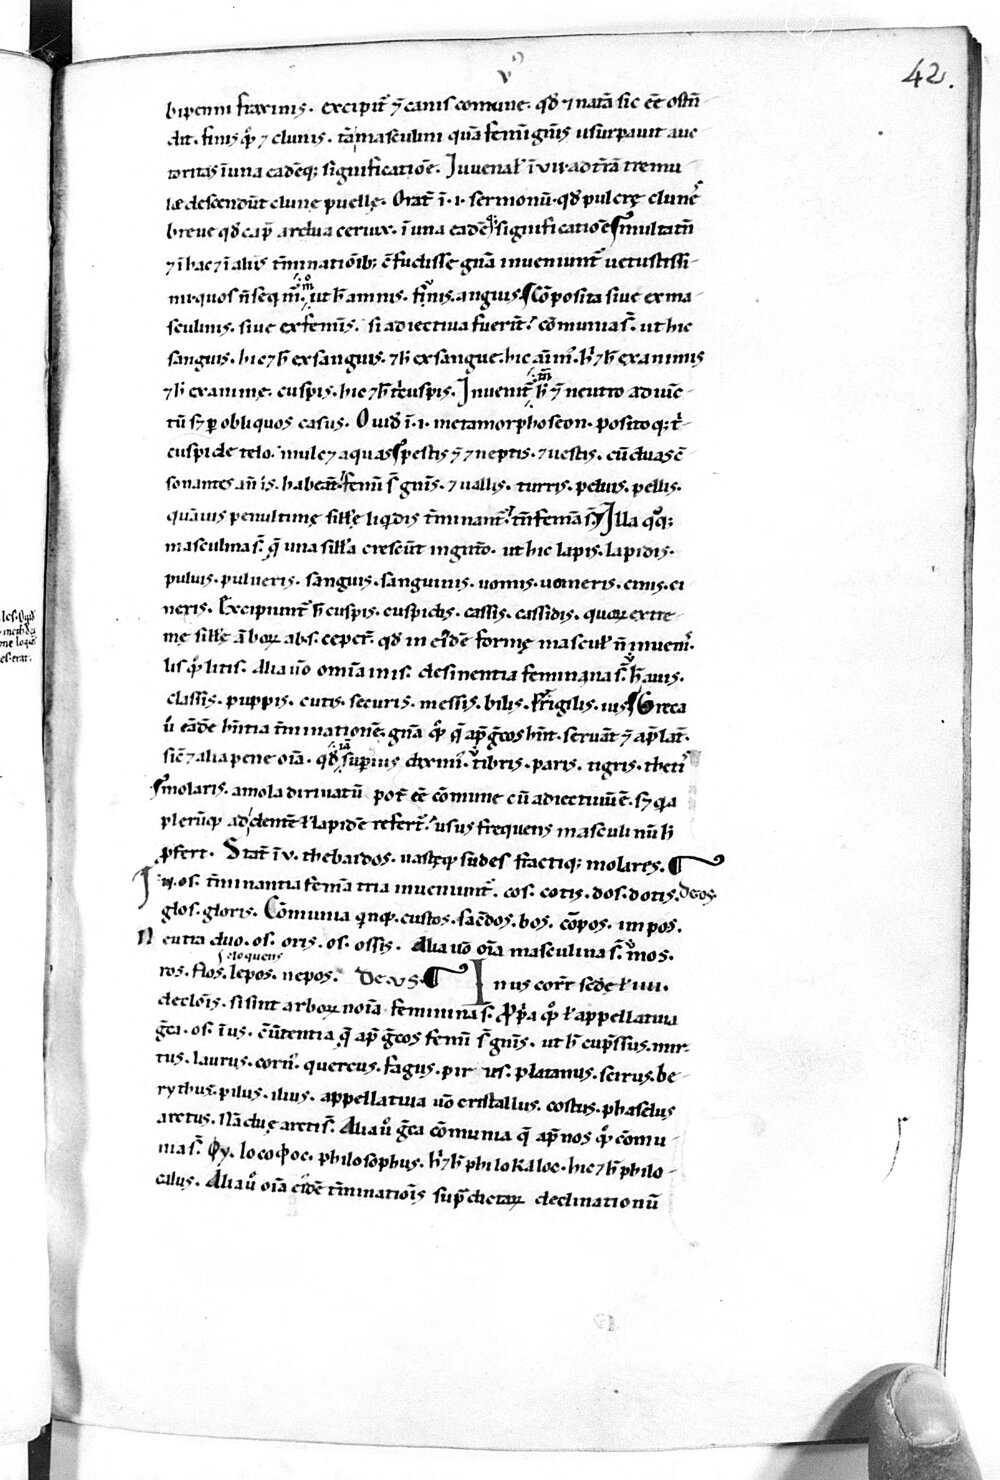 42.
bipenni fraxinis. excipit᷑ ⁊ canis comune. qđ ⁊ natā sic eē ostñ
dit. finis qͦ ⁊ clunis. tā masculini quā femī gñis usurpauit auc
toritas ī una eadēq; significatiōe. Iuuenał ī VII. ad t̄rā tremu
læ descendūt clune puellę. Orat̄ ī .I. sermonū. qđ pulcrę clunes
breue qđ cap̄ ardua ceruix. ī una eadē significatiōe multa tn̄
⁊ ī hac ⁊ ī aliis t̄minatiōib; cōfudisse gñā inueniunt᷑ uetustissi
mi. quos n̄ seq̄m̄. ut h̄ amnis. finis. anguis. Cōposita siue ex ma
sculinis. siue ex femīs. si adiectiua fuerīt. cōmunia s̄. ut hic
sanguis. hic ⁊ h̄ exsanguis. ⁊ h̄ exsangue. hic aīm'. h̄ ⁊ h̄ exanimis
⁊ h̄ exanime. cuspis. hic ⁊ h̄ t̄cuspis. Inuenit᷑ h̄ ⁊ neutro adiūc
tū s⁊ p̱ obliquos casus. Ouiđ ī .I. metamorphoseon. posito q; t̄
cuspide telo. mulc⁊ aquas pestis ⁊ neptis. ⁊ uestis. cū duas c̄
sonantes añ is. habeāt. femī s̄ gñis. ⁊ uallis. turris. peluis. pellis.
quāuis penultimę sillę liq̄dis t̄minant᷑. tn̄ femā s̄. Illa qͦq;
masculina s̄. q̄ una sill'a crescūt in gñto. ut hic lapis. lapidis.
puluis. pulueris. sanguis. sanguinis. uomis. uomeris. cinis. ci
neris. Excipiunt᷑ h̄ cuspis. cuspidis. cassis. cassidis. quoꝝ extre
mę sillę ā boꝝ abs. cepert᷑. qđ in eīdē formę mascuł n̄ inuenit᷑.
lis qͦ litis. Alia ūo omīa in is. desinentia feminina s̄. h̄ auis.
classis. puppis. cutis. securis. messis. bilis. frigilis. uis Greca
ū eādē hn̄tia t̄minationē. gñā qͦ q̄ ap̄ grecos hn̄t. seruāt ⁊ ap̄ lat̄.
sic ⁊ alia pene oīa. qđ superius diximꝰ. tibris. paris. tigris. thetis
molaris. a mola diriuatū pot̄ eē cōmune cū adiectiuū ē. s⁊ q̄a
plerūq̨ ad dentē ł lapidē refert᷑. usus frequens masculinū h̄
p̱fert. Stat̄ ī V. thebaidos. uastęq̨ sudes fractiq; molares.
In .os. t̄minantia femīa tria inueniunt᷑. cos. cotis. dos. dotis. De os
glos. gloris. Cōmunia qnq̨. custos. sac̄dos. bos. cōpos. impos.
Neutra duo. os. oris. os. ossis. Alia ūo oīa masculina s̄. mos.
eloquens
ros. flos. lepos. nepos. De.VS. In us corr̄ sedę ł IIII.
declōis. si sint arboꝝ noīa feminina s̄. p̄p̄a qͦ ł appellatiua
grēca. os. ī us. cōūtentia q̄ ap̄ grēcos femī s̄ gñis. ut h̄ cup̄ssus. mir
tus. laurus. corn'. quercus. fagus. pirus. platanus. scirus. be
rythus. pilus. ilius. appellatiua ūo cristallus. costus. phaselus
arctus. Nā duę arctis s̄. Alia ū grēca cōmunia q̄ ap̄ nos qͦ cōmu
nia s̄. ΦΥ. locoΦoc. philosophus. h̄ ⁊ h̄ philoKaloc. hic ⁊ h̄ philo
calus. Alia ū oīa eīdē t̄minatiōis sup̄dictaꝝ declinationū